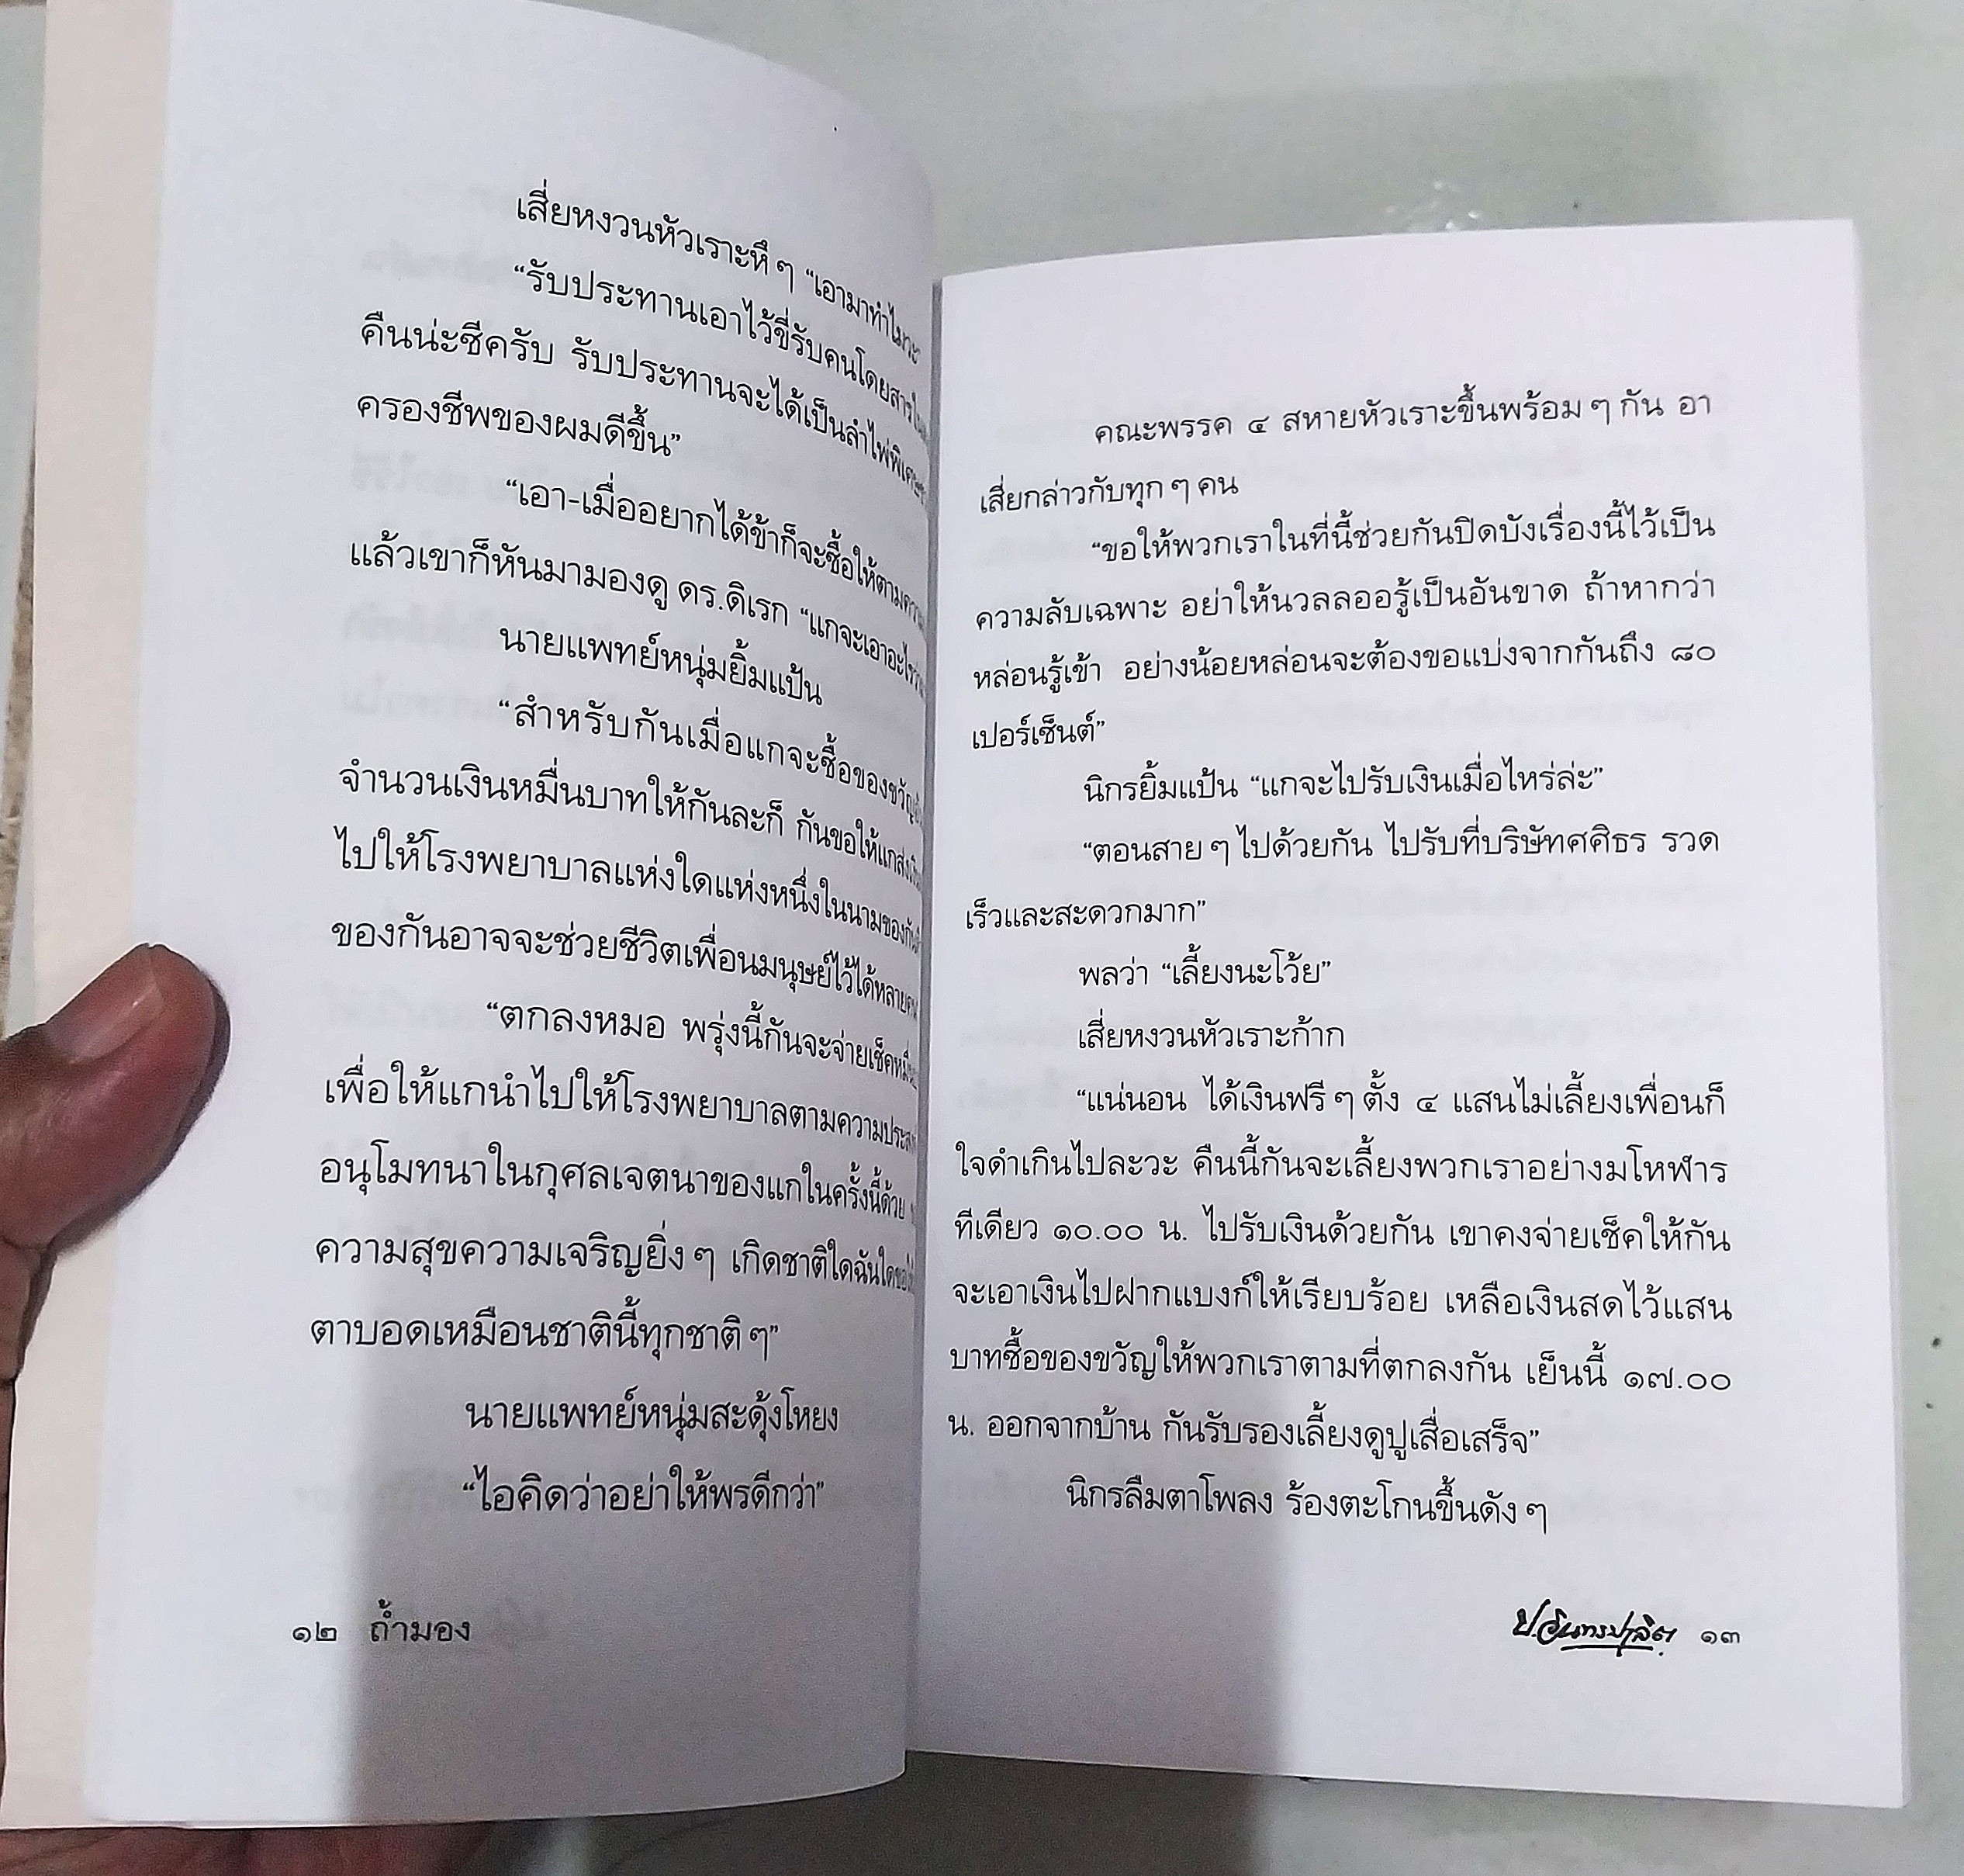 เสี่ยหงวนหัวเราะหึ ๆ “เอามาทำไมวะ
“รับประทานเอาไว้ขี่รับคนโดยสารใน
คืนน่ะซีครับ รับประทานจะได้เป็นลำไพ่พิเศษ
ครองชีพของผมดีขึ้น”
“เอา-เมื่ออยากได้ข้าก็จะซื้อให้ตามความ
แล้วเขาก็หันมามองดู ดร.ดิเรก “แกจะเอาอะไรวะ
นายแพทย์หนุ่มยิ้มแป้น
“สำหรับกันเมื่อแกจะซื้อของขวัญ
จำนวนเงินหมื่นบาทให้กันละก็ กันขอให้แกส่งเงิน
ไปให้โรงพยาบาลแห่งใดแห่งหนึ่งในนามของกัน
ของกันอาจจะช่วยชีวิตเพื่อนมนุษย์ไว้ได้หลายคน
“ตกลงหมอ พรุ่งนี้กันจะจ่ายเช็คหมื่น
เพื่อให้แกนำไปให้โรงพยาบาลตามความประสงค์
อนุโมทนาในกุศลเจตนาของแกในครั้งนี้ด้วย
ความสุขความเจริญยิ่ง ๆ เกิดชาติใดฉันใดขอให้
ตาบอดเหมือนชาตินี้ทุกชาติ ๆ”
นายแพทย์หนุ่มสะดุ้งโหยง
“ไอคิดว่าอย่าให้พรดีกว่า”
๑๒ ถ้ำมอง
คณะพรรค ๔ สหายหัวเราะขึ้นพร้อม ๆ กัน อา
เสี่ยกล่าวกับทุก ๆ คน
“ขอให้พวกเราในที่นี้ช่วยกันปิดบังเรื่องนี้ไว้เป็น
ความลับเฉพาะ อย่าให้นวลลออรู้เป็นอันขาด ถ้าหากว่า
หล่อนรู้เข้า อย่างน้อยหล่อนจะต้องขอแบ่งจากกันถึง ๘๐
เปอร์เซ็นต์”
นิกรยิ้มแป้น “แกจะไปรับเงินเมื่อไหร่ล่ะ”
“ตอนสาย ๆ ไปด้วยกัน ไปรับที่บริษัทศศิธร รวด
เร็วและสะดวกมาก”
พลว่า “เลี้ยงนะโว้ย”
เสี่ยหงวนหัวเราะก้าก
“แน่นอน ได้เงินฟรี ๆ ตั้ง ๔ แสนไม่เลี้ยงเพื่อนก็
ใจดำเกินไปละวะ คืนนี้กันจะเลี้ยงพวกเราอย่างมโหฬาร
ทีเดียว ๑๐.๐๐ น. ไปรับเงินด้วยกัน เขาคงจ่ายเช็คให้กัน
จะเอาเงินไปฝากแบงก์ให้เรียบร้อย เหลือเงินสดไว้แสน
บาทซื้อของขวัญให้พวกเราตามที่ตกลงกัน เย็นนี้ ๑๗.๐๐
น. ออกจากบ้าน กันรับรองเลี้ยงดูปูเสื่อเสร็จ”
นิกรลืมตาโพลง ร้องตะโกนขึ้นดัง ๆ
ป.อินทรปาลิต ๑๓